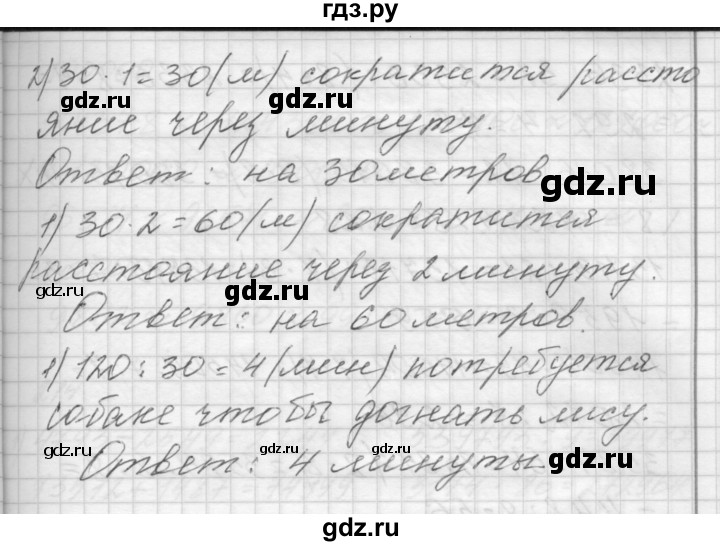 гдз.ру
2) 30 · 1 = 30 (м) сократится рассто
яние через минуту.
Ответ: на 30 метров
1) 30 · 2 = 60 (м) сократится
расстояние через 2 минуту.
Ответ: на 60 метров.
1) 120 : 30 = 4 (мин) потребуется
собаке чтобы догнать лису.
Ответ: 4 минуты
gdz.ru
gdz.ru
gdz.ru
gdz.ru
gdz.ru
gdz.ru
gdz.ru
gdz.ru
gdz.ru
gdz.ru
gdz.ru
gdz.ru
gdz.ru
gdz.ru